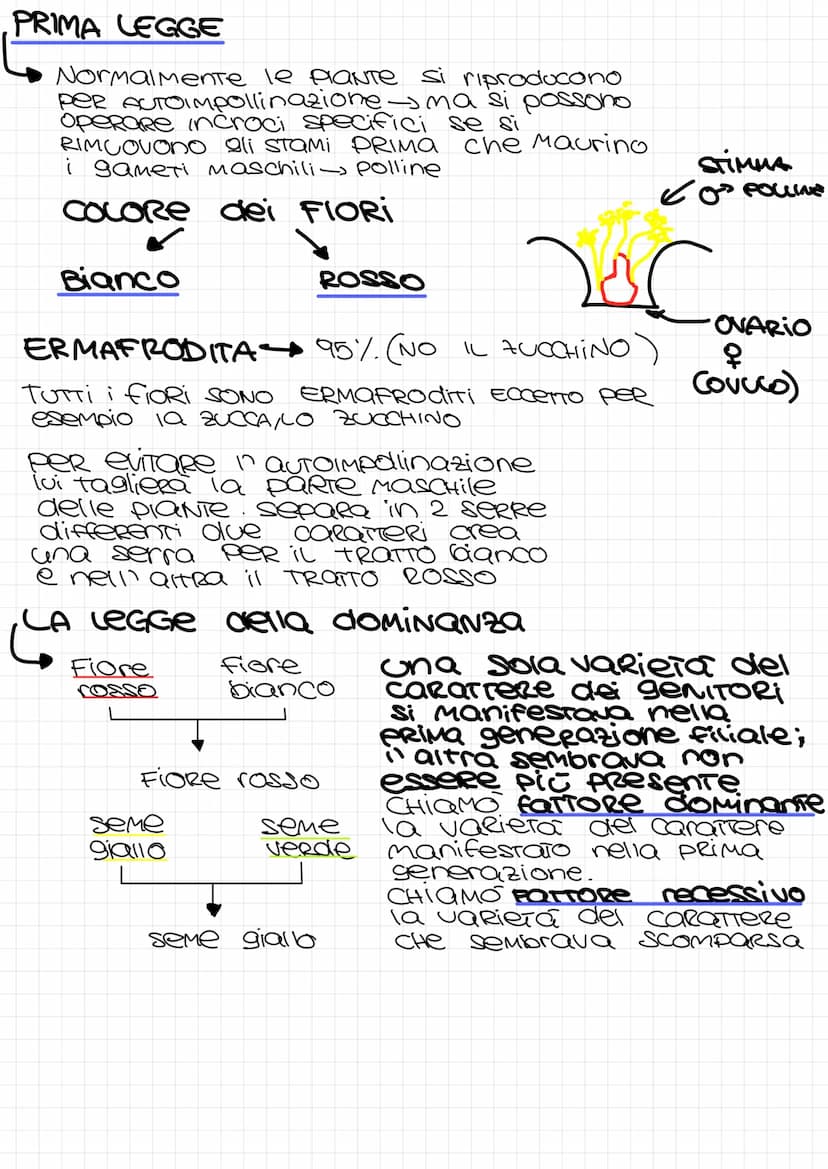 PRIMA LEGGE
NORMALMENTE le PIANTE si riproducono
PER AUTOIMPOLLINAZIONE → ma si possono
OPERARE incroci specifici se si
RIMUOVONO gli STAMI PRIMA che MATURINO
i gameti maschili → polline
COLORE dei FIORI
STIMMA
♂ POLLINE
Bianco ROSSO
OVARIO
♀
(OVULO)
ERMAFRODITA → 95% (NO IL ZUCCHINO)
TUTTI i fiori SONO ERMAFRODITI ECCETTO PER
esempio la ZUCCA, LO ZUCCHINO
PER EVITARE l'AUTOIMPOLLINAZIONE
lui taglierà la PARTE MASCHILE
delle PIANTE. SEPARA in 2 SERRE
differenti due CARATTERI crea
una serra PER IL TRATTO bianco
e nell'altra il TRATTO ROSSO
LA LEGGE della DOMINANZA
Fiore fiore
rosso bianco
FIORE rosso
seme seme
giallo verde
seme giallo
una sola varietà del
CARATTERE dei GENITORI
si manifestava nella
PRIMA generazione filiale;
l'altra sembrava non
essere più PRESENTE
CHIAMÒ FATTORE DOMINANTE
la varietà del CARATTERE
manifestato nella prima
generazione.
CHIAMÒ FATTORE RECESSIVO
la varietà del CARATTERE
CHE SEMBRAVA SCOMPARSA